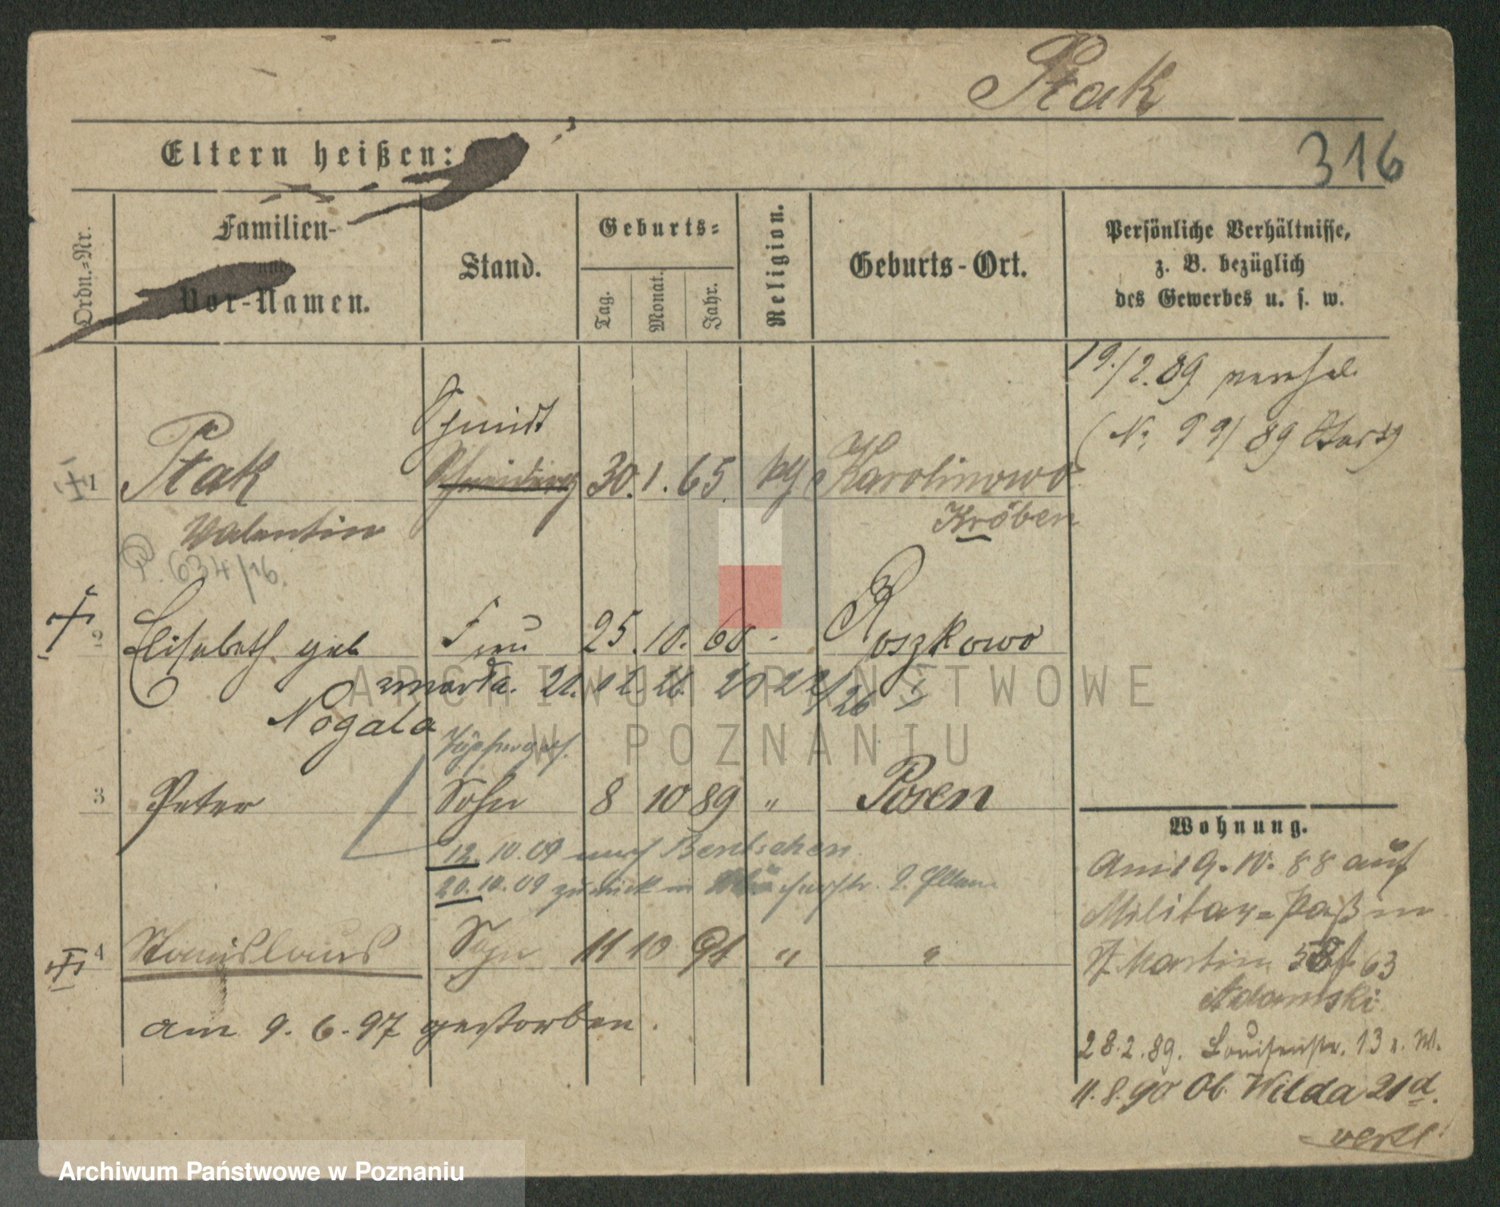 Ptak
316
Eltern heißen:
Ordn.-Nr.
Familien-
und
Vor-Namen.
Stand.
Geburts-
Tag.
Monat.
Jahr.
Religion.
Geburts-Ort.
Persönliche Verhältnisse,
z. B. bezüglich
des Gewerbes u. s. w.
19./2.89 vereh.
(Nr 99/89
Schmidt
1 Ptak 30. 1. 65. Karolinowo
Valentin Kröben
P. 634/16.
2 Elisabeth geb Frau 25. 10. 66 Roszkowo
zmarła. 21. 12. 26.
Nogala
3 Peter Sohn 8 10 89 " Posen
12. 10. 09 nach Bentschen
20. 10. 09 zurück
4 Stanislaus Sohn 11 10 91 " "
am 9. 6. 97 gestorben.
Wohnung.
Am 19. 10. 88 auf
Militar-Paß in
St. Martin 58
Adamski
28.2.89. Louisenstr. 13
11.8.90 Ob. Wilda 21d.
vertl
ARCHIWUM PAŃSTWOWE
W POZNANIU
Archiwum Państwowe w Poznaniu